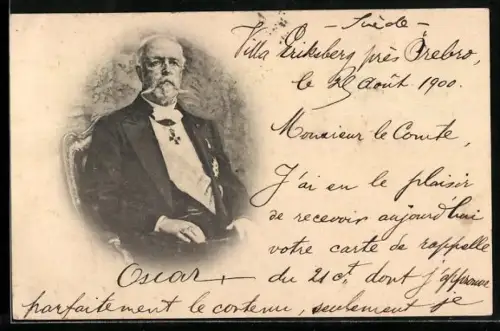 - Suède -
Villa Eriksberg près Örebro,
le 25 Août 1900.
Monsieur le Comte,
J'ai eu le plaisir
de recevoir aujourd'hui
votre carte de rappelle
du 21 ct, dont j'approuve
parfaitement le contenu, seulement je
Oscar